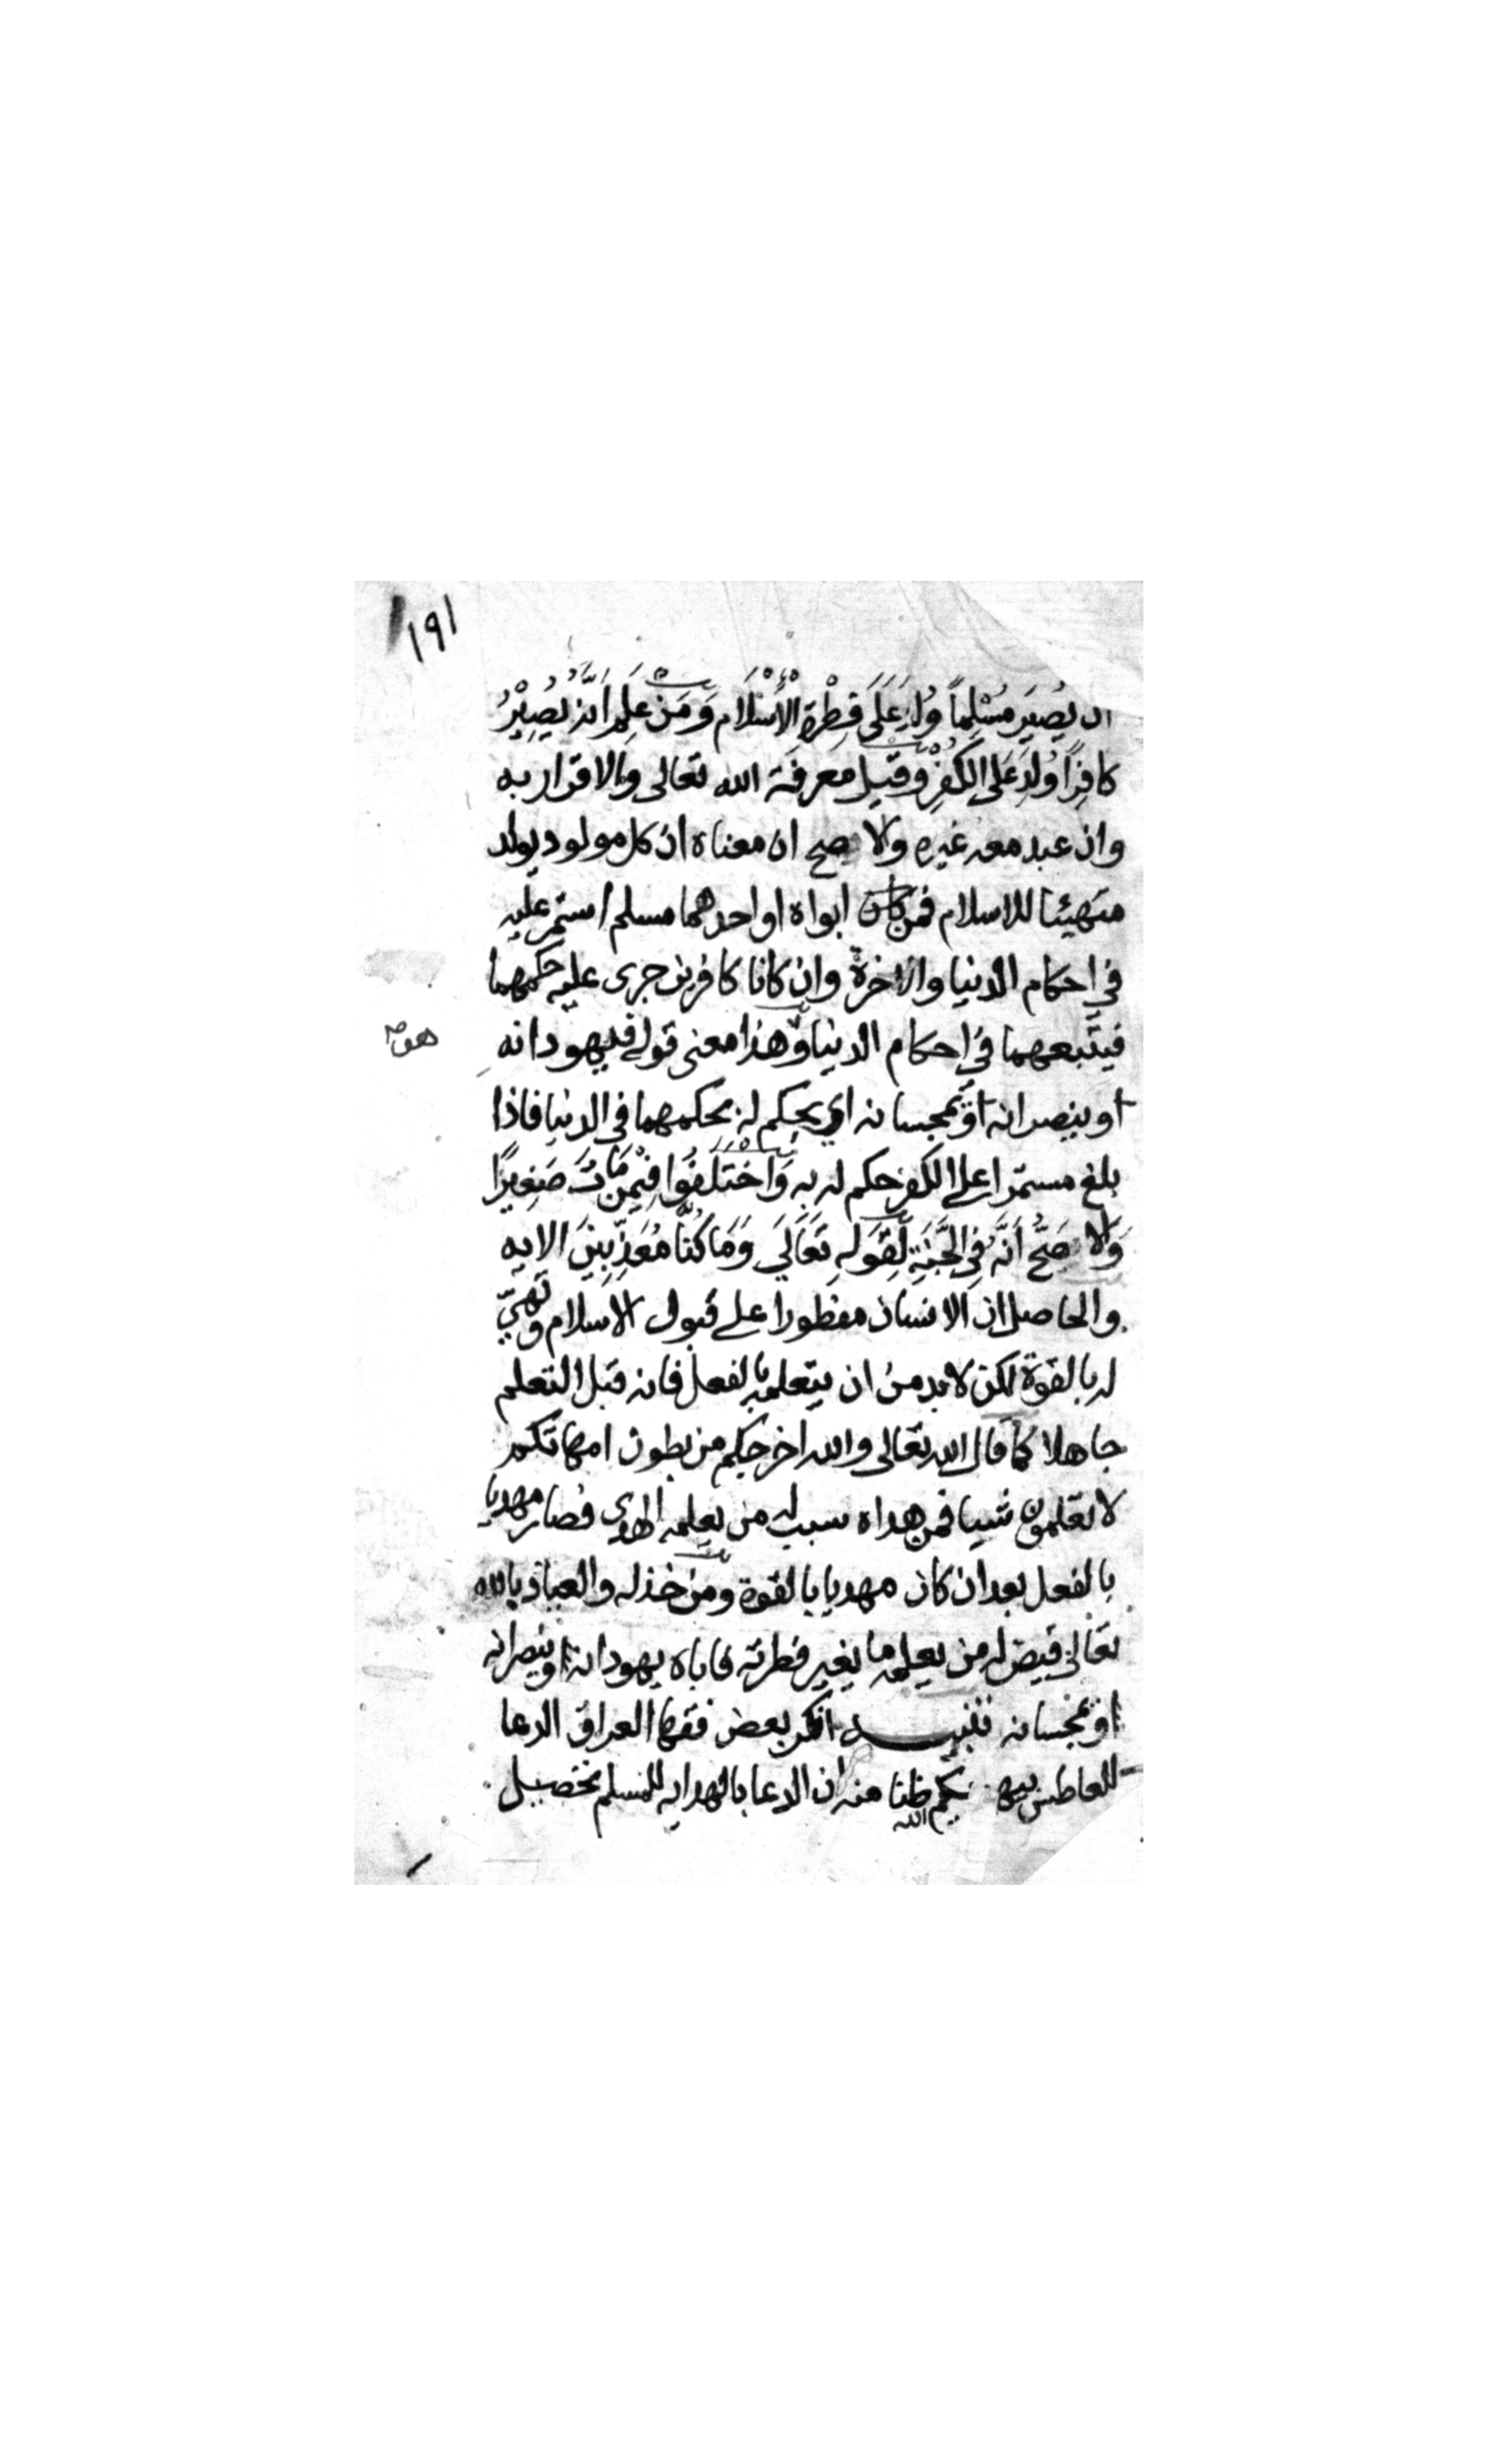 ١٩١
ان يُصِيَر مُسْلِماً وُلِدَ عَلَى فِطْرَةِ الْأِسْلَام وَمَنْ عَلِمَ اَنَّهُ يُصِيْرُ
كافِرًا وُلِدَ عَلى الكُفْرِ وقيل معرفة الله تعالى والاقرار به
وان عبد معه غيره والاصح ان معناه ان كل مولود يولد
متهيئا للاسلام فمن كان ابواه او احدهما مسلم استمر عليه
في احكام الدنيا والاخرة وان كانا كافرين جرى عليه حكمهما
فيتبعهما في احكام الدنيا وهذا معنى قوله فيهودانه
او ينصرانه او يمجسانه اي يحكم له بحكمهما في الدنيا فاذا
بلغ مستمرا على الكفر حكم له به وَاخْتَلَفُوا فِيْمَنْ مَاتَ صَغِيرًا
وَالاصَحُّ اَنَّهُ فِي الجَّنَةِ لِقَوَلِهِ تَعَالَي وَمَا كُنَّا مُعَذِّبِينَ الايه
والحاصل ان الانسان مفطورا على قبول الاسلام وتهيّي
له بالقوة لكن لابد من ان يتعلمه بالفعل فانه قبل التعلم
جاهلا كما قال الله تعالى والله اخرجكم من بطون امهاتكم
لا تعلمون شيا فمن هداه سبب له من يعلمه الهدى فصار مهديا
بالفعل بعد ان كان مهديا بالقوة ومن خذله والعياذ بالله
تعالى قيض له من يعلمه ما يغير فطرته فاباه يهودانه او ينصرانه
او يمجسانه تنبيه انكر بعض فقها العراق الدعا
للعاطس بيهديكم الله ظنا منه ان الدعا بالهدايه للمسلم تحصيل